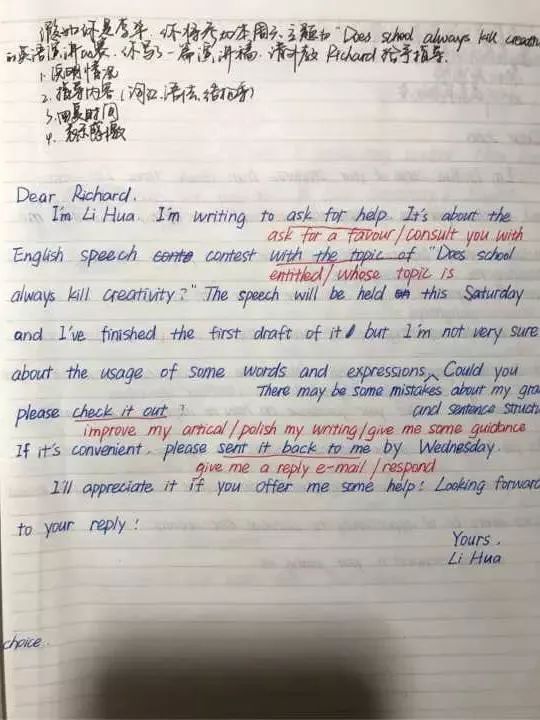 假如你是李华,你将参加本周六主题为"Does school always kill creativ
的英语演讲比赛,你写了一篇演讲稿,请外教Richard给予指导.
1.说明情况
2.指导内容(词汇、语法、结构等)
3.回复时间
4.表示感激
Dear Richard.
I'm Li Hua. I'm writing to ask for help. It's about the
ask for a favour/consult you with
English speech contest with the topic of "Does school
entitled/whose topic is
always kill creativity?" The speech will be held this Saturday
and I've finished the first draft of it but I'm not very sure
about the usage of some words and expressions. Could you
There may be some mistakes about my gra
please check it out? and sentence struct
improve my artical/polish my writing/give me some guidance
If it's convenient, please sent it back to me by Wednesday.
give me a reply e-mail/respond
I'll appreciate it if you offer me some help! Looking forward
to your reply!
Yours,
Li Hua
choice.